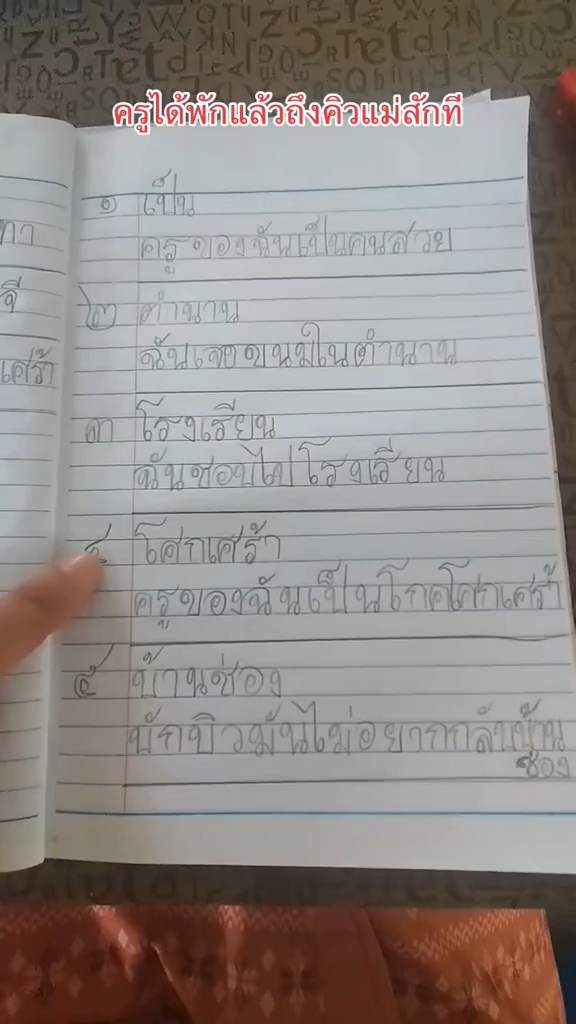 ครูได้พักแล้วถึงคิวแม่สักที
ทา
จี
เศร้า
๑ เป็น
ครูของฉันเป็นคนสวย
๒ ตำนาน
ฉันเจอขนมในตำนาน
๓ โรงเรียน
ฉันชอบไปโรงเรียน
๔ โศกเศร้า
ครูของฉันเป็นโรคโศกเศร้า
๕ บ้านช่อง
บักบิวมันไม่อยากกลับบ้าน
ช่อง